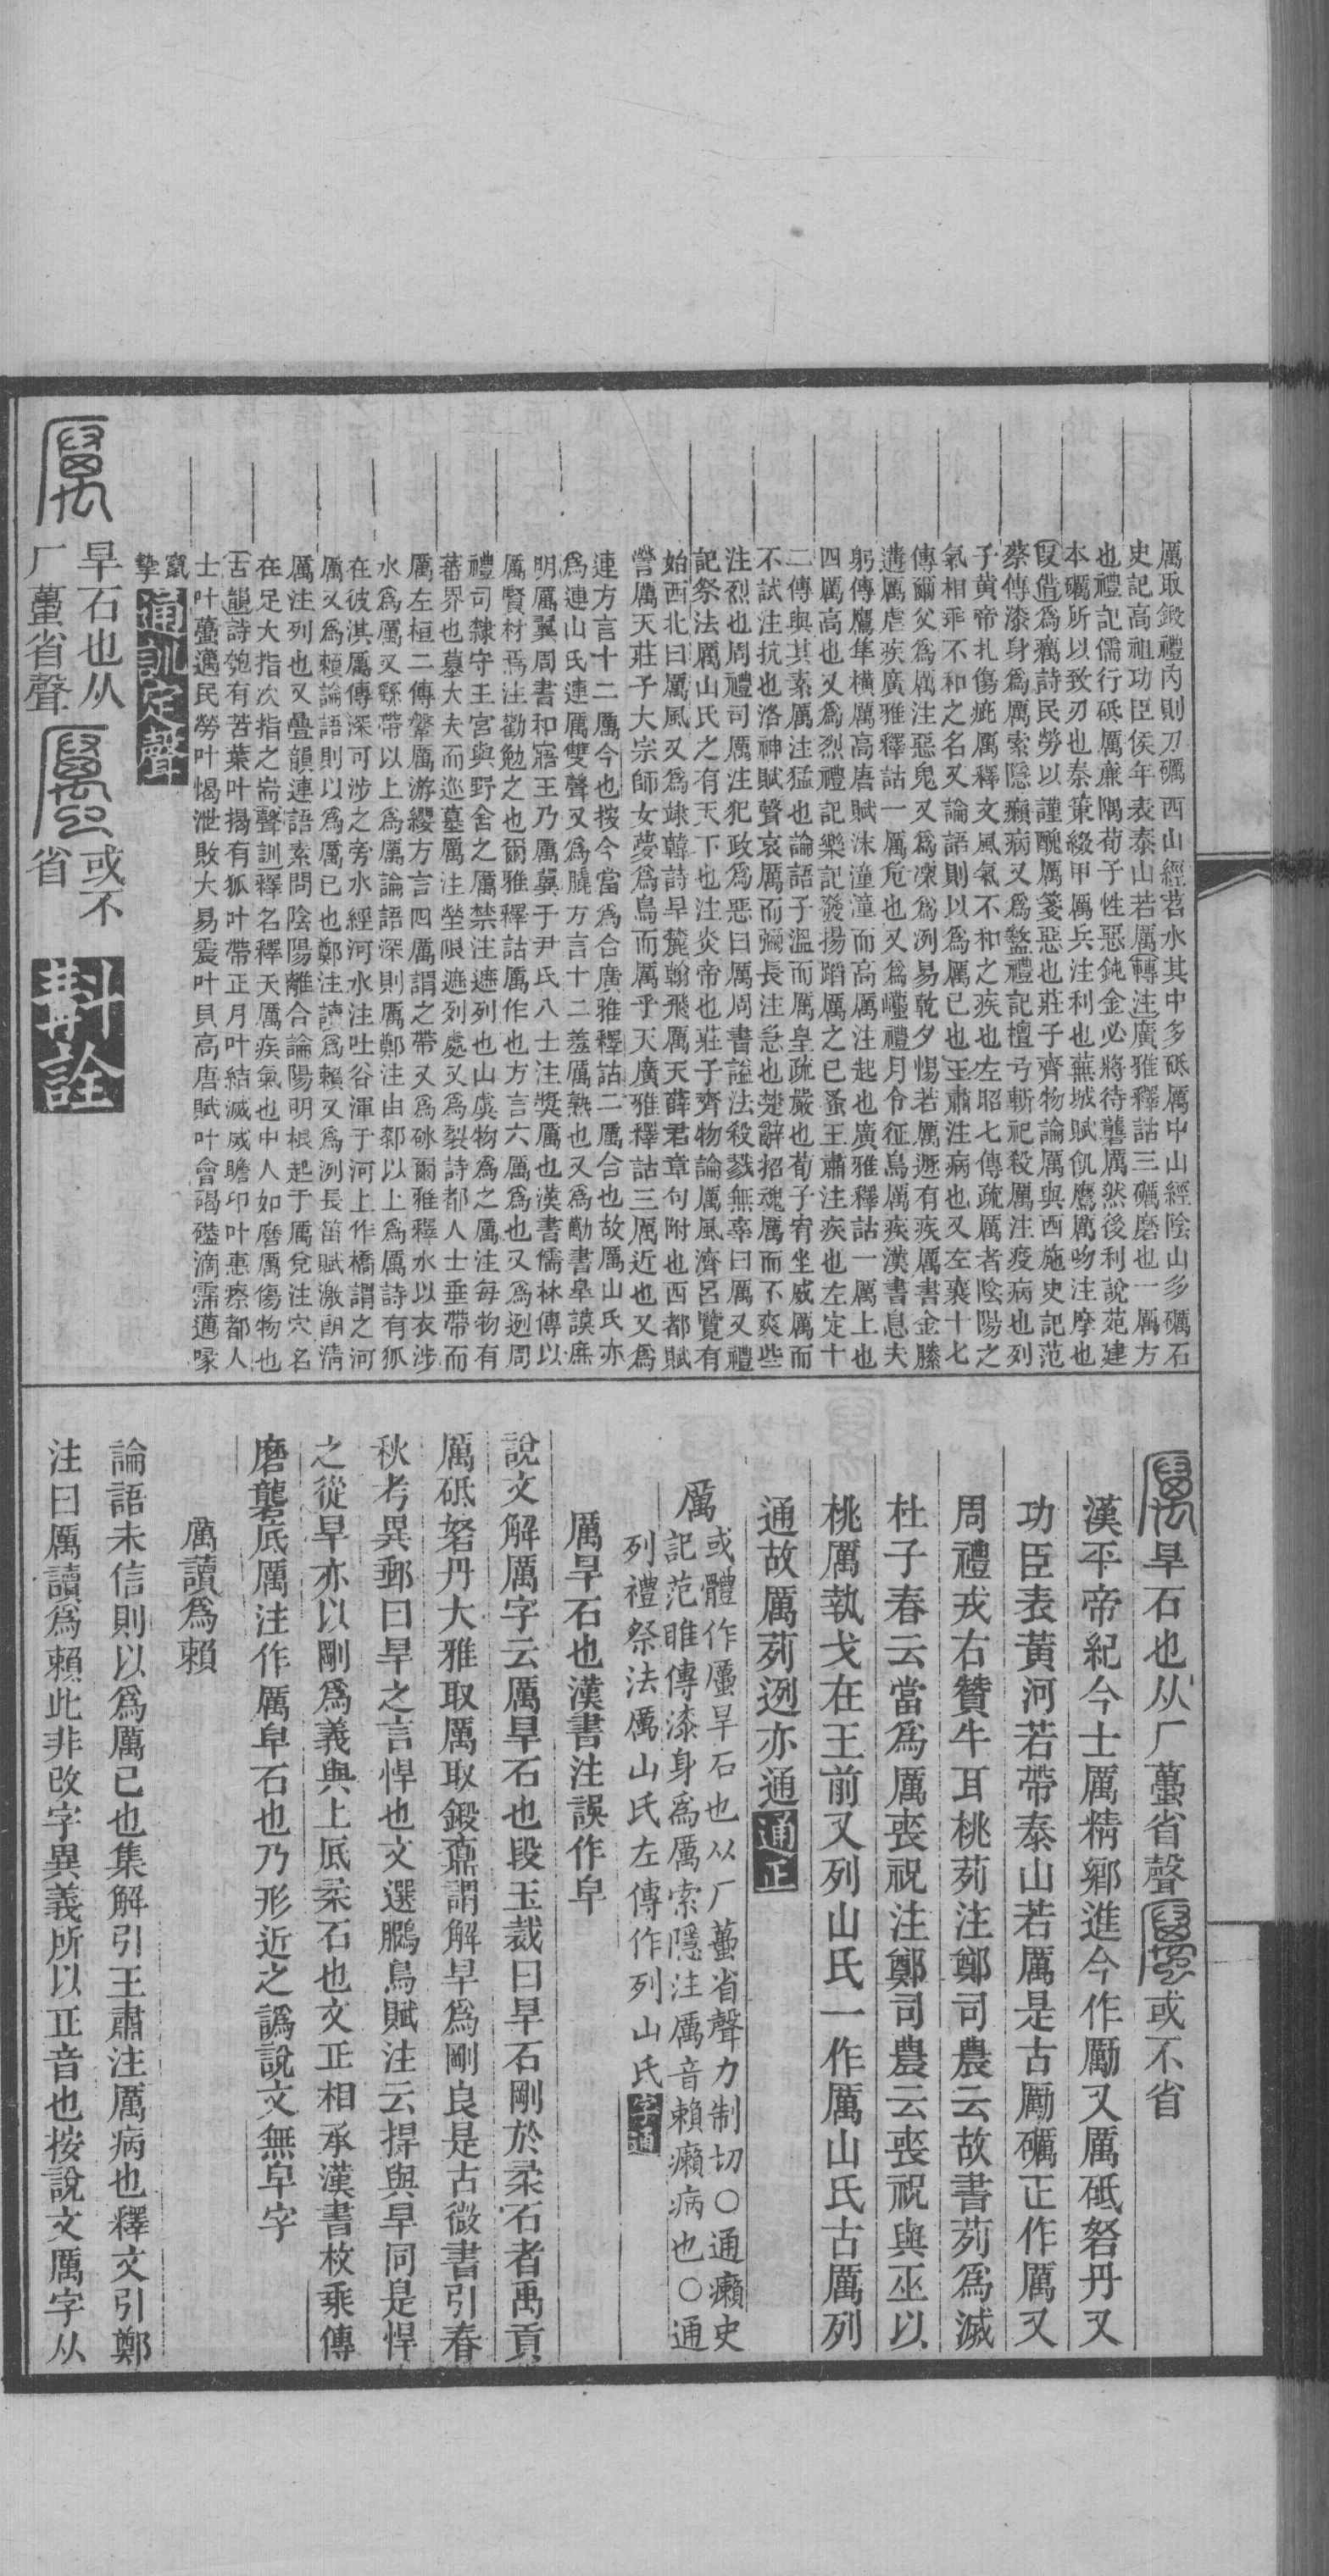 厲取鍛禮內則刀礪西山經苕水其中多砥厲中山經陰山多礪石
史記高祖功臣侯年表泰山若厲轉注廣雅釋詁三礪磨也一厲方
也禮記儒行砥厲廉隅荀子性惡鈍金必將待礱厲然後利說苑建
本礪所以致刃也秦策綴甲厲兵注利也蕪城賦飢鷹厲吻注摩也
叚借爲癘詩民勞以謹醜厲箋惡也莊子齊物論厲與西施史記范
蔡傳漆身爲厲索隱癩病又爲盭禮記檀弓斬祀殺厲注疫病也列
子黃帝札傷疵厲釋文風氣不和之疾也左昭七傳疏厲者陰陽之
氣相乖不和之名又論語則以爲厲已也王肅注病也又左襄十七
傳爾父爲厲注惡鬼又爲凓爲洌易乾夕惕若厲遯有疾厲書金縢
遘厲虐疾廣雅釋詁一厲危也又爲巁禮月令征鳥厲疾漢書息夫
躬傳鷹隼橫厲高唐賦沫潼潼而高厲注起也廣雅釋詁一厲上也
四厲高也又爲烈禮記樂記發揚蹈厲之已蚤王肅注疾也左定十
二傳與其素厲注猛也論語子溫而厲皇疏嚴也荀子宥坐威厲而
不試注抗也洛神賦聲哀厲而彌長注急也楚辭招魂厲而不爽些
注烈也周禮司厲注犯政爲惡曰厲周書諡法殺戮無辜曰厲又禮
記祭法厲山氏之有天下也注炎帝也莊子齊物論厲風濟呂覽有
始西北曰厲風又爲隷韓詩旱麓翰飛厲天薛君章句附也西都賦
礜厲天莊子大宗師女夢爲鳥而厲乎天廣雅釋詁三厲近也又爲
連方言十二厲今也按今當爲合廣雅釋詁二厲合也故厲山氏亦
爲連山氏連厲雙聲又爲𦢊方言十二羞厲熟也又爲勱書皋謨庶
明厲翼周書和寤王乃厲翼于尹氏八士注獎厲也漢書儒林傳以
厲賢材焉注勸勉之也爾雅釋詁厲作也方言六厲爲也又爲迾周
禮司隸守王宮與野舍之厲禁注遮列也山虞物爲之厲注每物有
蕃界也墓大夫而巡墓厲注塋限遮列處又爲裂詩都人士垂帶而
厲左桓二傳鞶厲游纓方言四厲謂之帶又爲砅爾雅釋水以衣涉
水爲厲又繇帶以上爲厲論語深則厲鄭注由膝以上爲厲詩有狐
在彼淇厲傳深可涉之旁水經河水注吐谷渾于河上作橋謂之河
厲又爲賴論語則以爲厲已也鄭注讀爲賴又爲洌長笛賦激朗清
厲注列也又疊韻連語素問陰陽離合論陽明根起于厲兌注穴名
在足大指次指之耑聲訓釋名釋天厲疾氣也中人如磨厲傷物也
古韻詩匏有苦葉叶揭有狐叶帶正月叶結滅威瞻卬叶惠瘵都人
士叶蠆邁民勞叶愒泄敗大易震叶貝高唐賦叶會磕礚滴霈邁喙
竄摯通訓定聲
厲旱石也从厂蠆省聲厲或不省斠詮
厲旱石也从厂蠆省聲厲或不省
漢平帝紀今士厲精鄉進今作勵又厲砥砮丹又
功臣表黃河若帶泰山若厲是古勵礪正作厲又
周禮戎右贊牛耳桃茢注鄭司農云故書茢爲滅
杜子春云當爲厲喪祝注鄭司農云喪祝與巫以
桃厲執戈在王前又列山氏一作厲山氏古厲列
通故厲茢迾亦通通正
厲或體作𠪄旱石也从厂蠆省聲力制切○通癩史
記范睢傳漆身爲厲索隱注厲音賴癩病也○通
列禮祭法厲山氏左傳作列山氏字通
厲旱石也漢書注誤作皁
說文解厲字云厲旱石也段玉裁曰旱石剛於柔石者禹貢
厲砥砮丹大雅取厲取鍛鼐謂解旱爲剛良是古微書引春
秋考異郵曰旱之言悍也文選鵩鳥賦注云捍與旱同是悍
之從旱亦以剛爲義與上厎柔石也文正相承漢書枚乘傳
磨礱底厲注作厲皁石也乃形近之譌說文無皁字
厲讀爲賴
論語未信則以爲厲已也集解引王肅注厲病也釋文引鄭
注曰厲讀爲賴此非改字異義所以正音也按說文厲字从